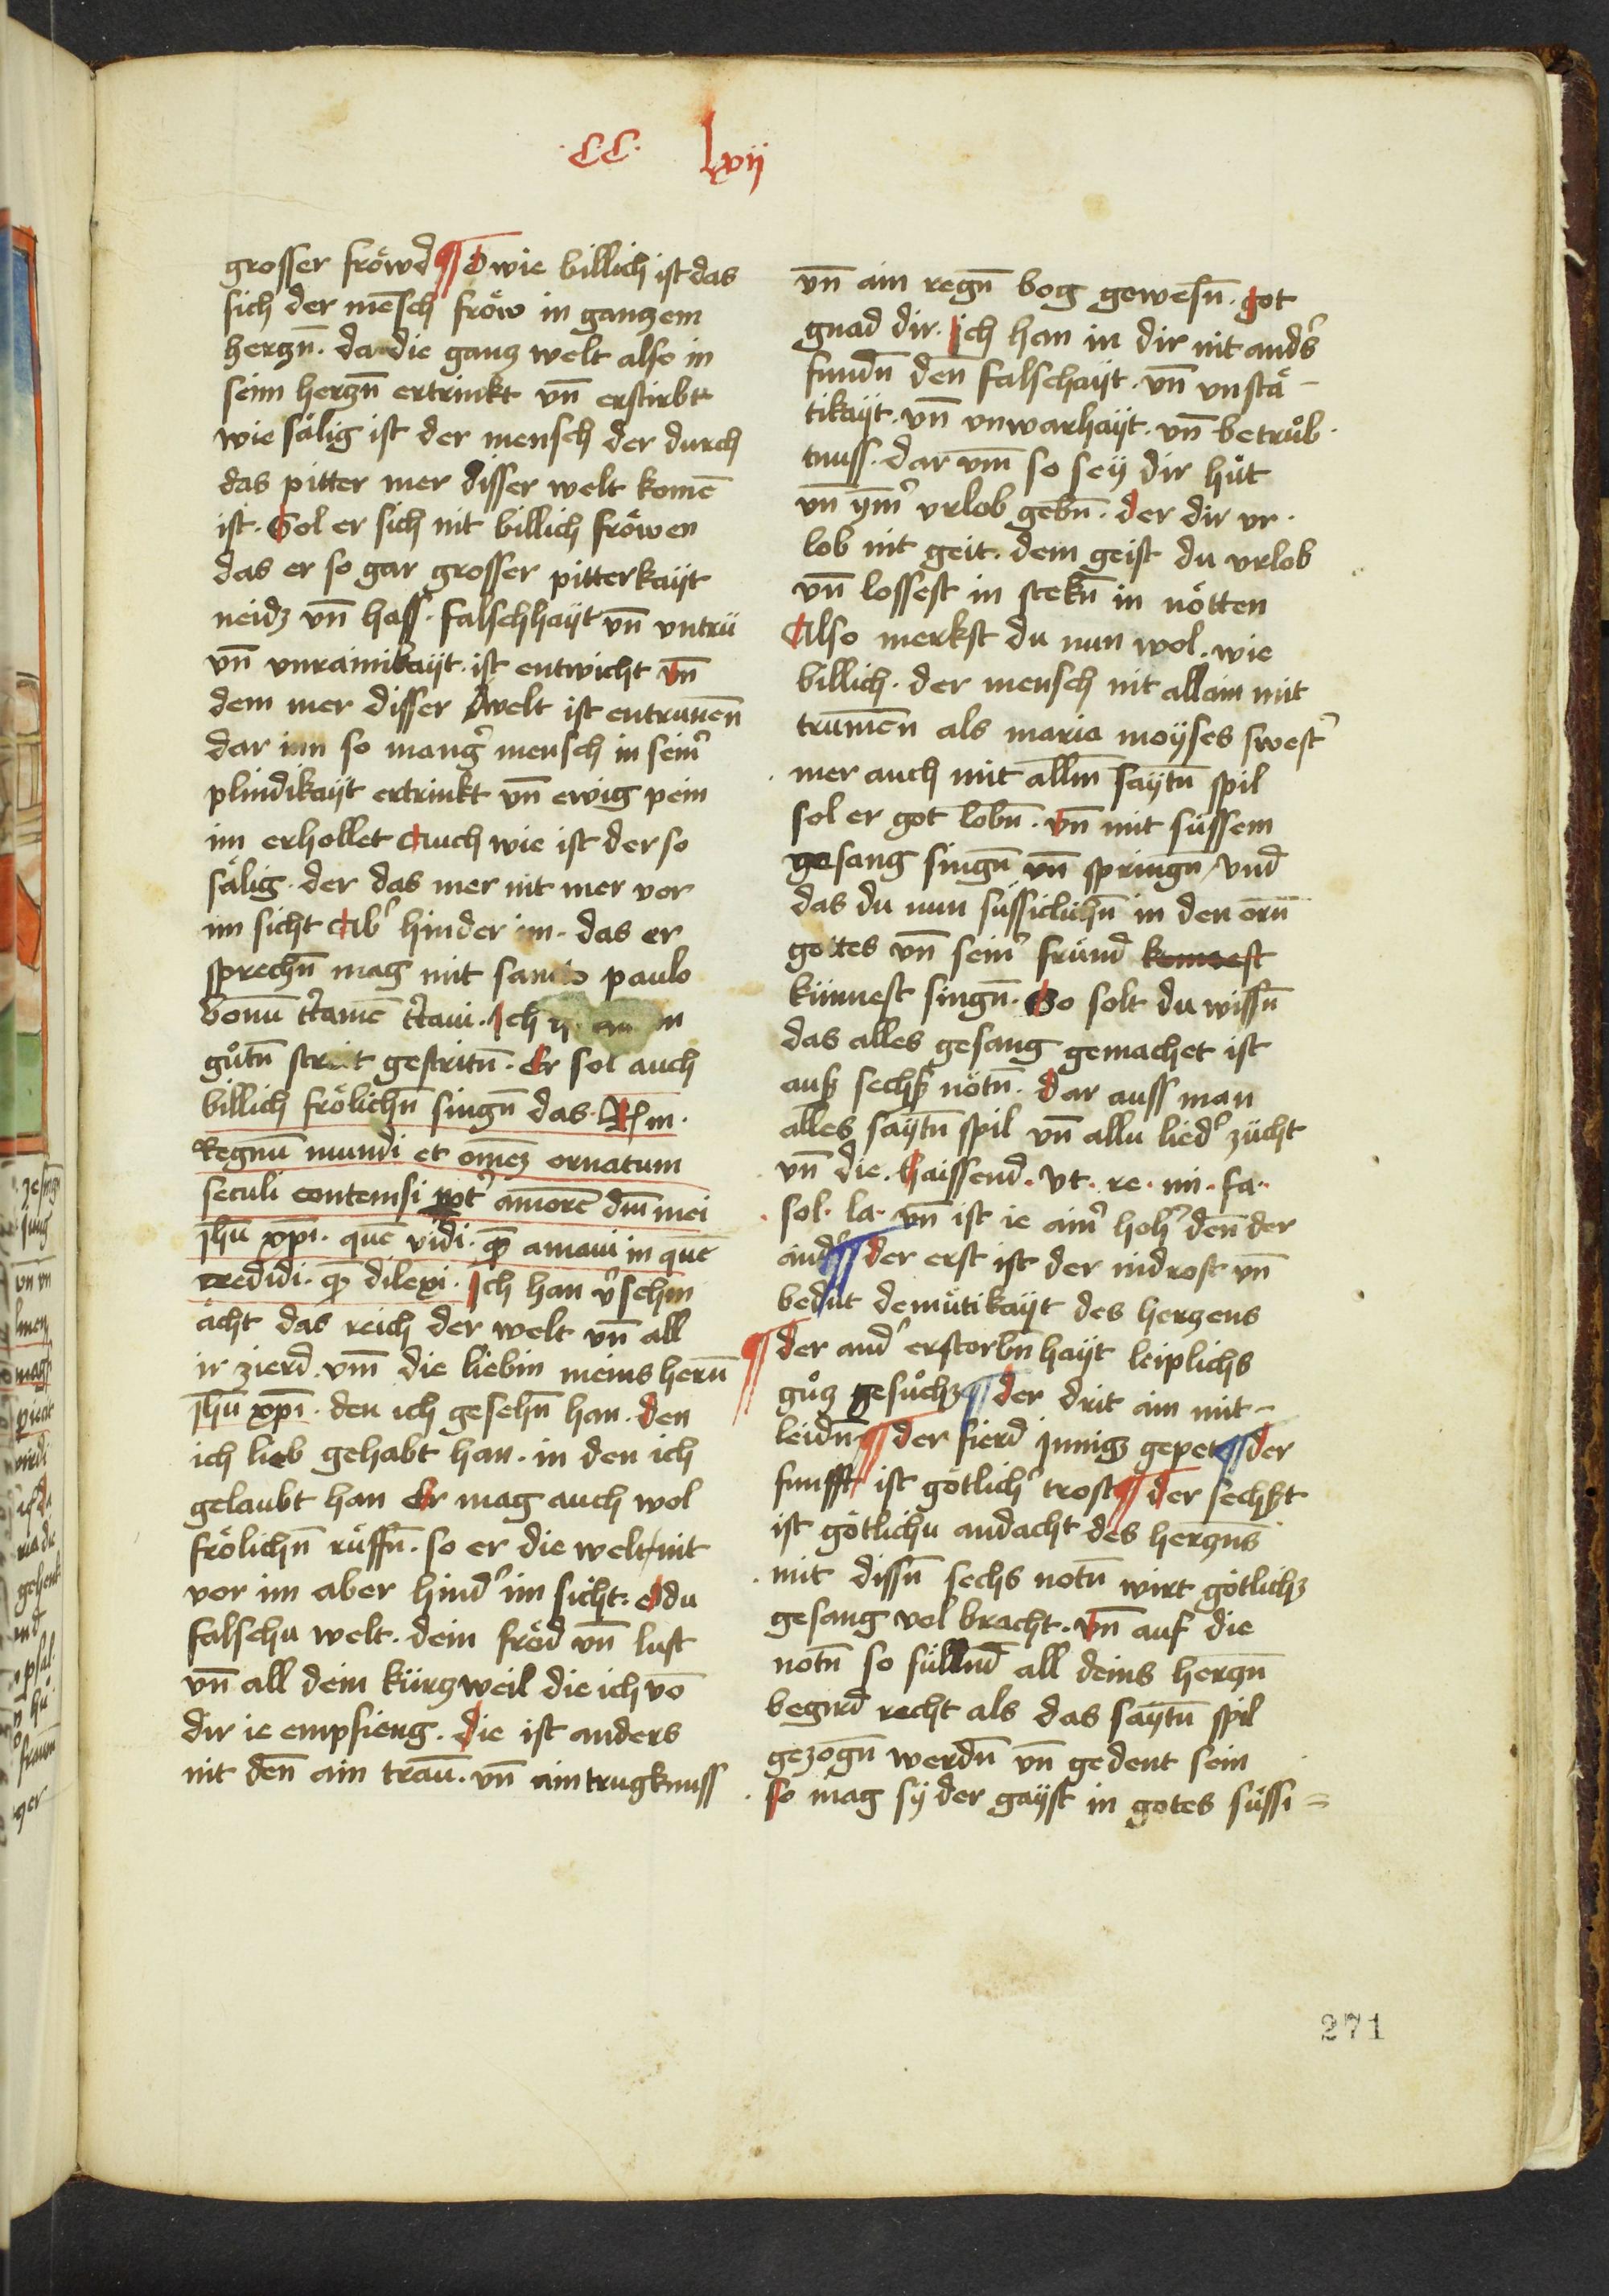 ·C·C· lxvij
grosser fröwd ¶ O wie billich ist das
sich der mēsch fröw in ganczem
herczn̄. da die gancz welt also in
seim herczn̄ ertrinkt vn̄ erstirbt
wie sälig ist der mensch der durch
das pitter mer disser welt komē
ist. Sol er sich nit billich fröwen
das er so gar grosser pitterkayt
neidz vn̄ hass. falschhayt vn̄ vntrü
vn̄ vnrainikayt. ist entwicht vn̄
dem mer disser welt ist entrunen̄
dar inn so mangˀ mensch in seimˀ
plindikayt ertrinkt vn̄ ewig pein
im erhollet Auch wie ist der so
sälig. der das mer nit mer vor
im sicht Abˀ hinder im. das er
sprechn̄ mag mit sancto paulo
bonū c̄tamē c̄taui. Ich
gůtn̄ streit gestritn̄. Er sol auch
billich frölichn̄ singn̄ das. R̸m.
Regnū mundi et omēz ornatum
seculi contemsi ꝓptˀ amorē dn̄i mei
Jhū xp̄i. quē vidi. quē amaui in quē
credidi. quē dilexi. Ich han vˀschm
ächt das reich der welt vn̄ all
ir zierd. vm̄ die liebin meins herñ
Jhū xp̄i. den ich gesehn̄ han. den
ich lieb gehabt han. in den ich
gelaubt han Er mag auch wol
frölichn̄ rüffn̄. so er die welt nit
vor im aber hindˀ im sicht. O du
falschu welt. dein fröd vn̄ lust
vn̄ all dein kürczweil die ich vō
dir ie empfieng. die ist anders
nit den̄ ain traū. vn̄ ain trugknuss
vn̄ ain regn̄ bog gewesn̄. got
gnad dir. ich han in dir nit andˀs
fundn̄ den̄ falschayt. vn̄ vnstä-
tikayt. vn̄ vnwarhayt. vn̄ betrůb
tnuss. dar vm̄ so sey dir hüt
vn̄ ym̄ˀ vrlob gebn̄. der dir vr-
lob nit geit. dem geist du vrlob
vn̄ lossest in stekn̄ in nötten
Also merkst du nun wol. wie
billich. der mensch nit allain mit
trumen̄ als maria moyses swestˀ
mer auch mit allm̄ saytn̄ spil
sol er got lobn̄. vn̄ mit süssem
gesang singn̄ vn̄ springn̄ vnd
das du nun süssiclichn̄ in den orn̄
gottes vn̄ seinˀ fründ
künnest singn̄. So solt du wissn̄
das alles gesang gemachet ist
auss sechss nötn̄. Dar auss man
alles saytn̄ spil vn̄ allu liedˀ zücht
vn̄ die. haissend. vt. re. mi. fa.
sol. la. vn̄ ist ie ainˀ höhˀ den̄ der
andˀ ¶ der erst ist der nidrost vn̄
bedüt demütikayt des herczens
¶ der andˀ erstorbn̄hayt leiplichs
gůcz gesůchz ¶ der drit ain mit-
leidn̄ ¶ der fierd jnnigz gepet ¶ der
funfft ist götlichˀ trost ¶ der sechsst
ist götlichu andacht des herczn̄s
mit dissn̄ sechs notn̄ wirt götlichz
gesang vol bracht. vn̄ auf die
notn̄ so süllnd all deins herczn̄
begird recht als das saytn̄ spil
gezogn̄ werdn̄ vn̄ gedent sein
so mag sy der gayst in gotes süssi=
271